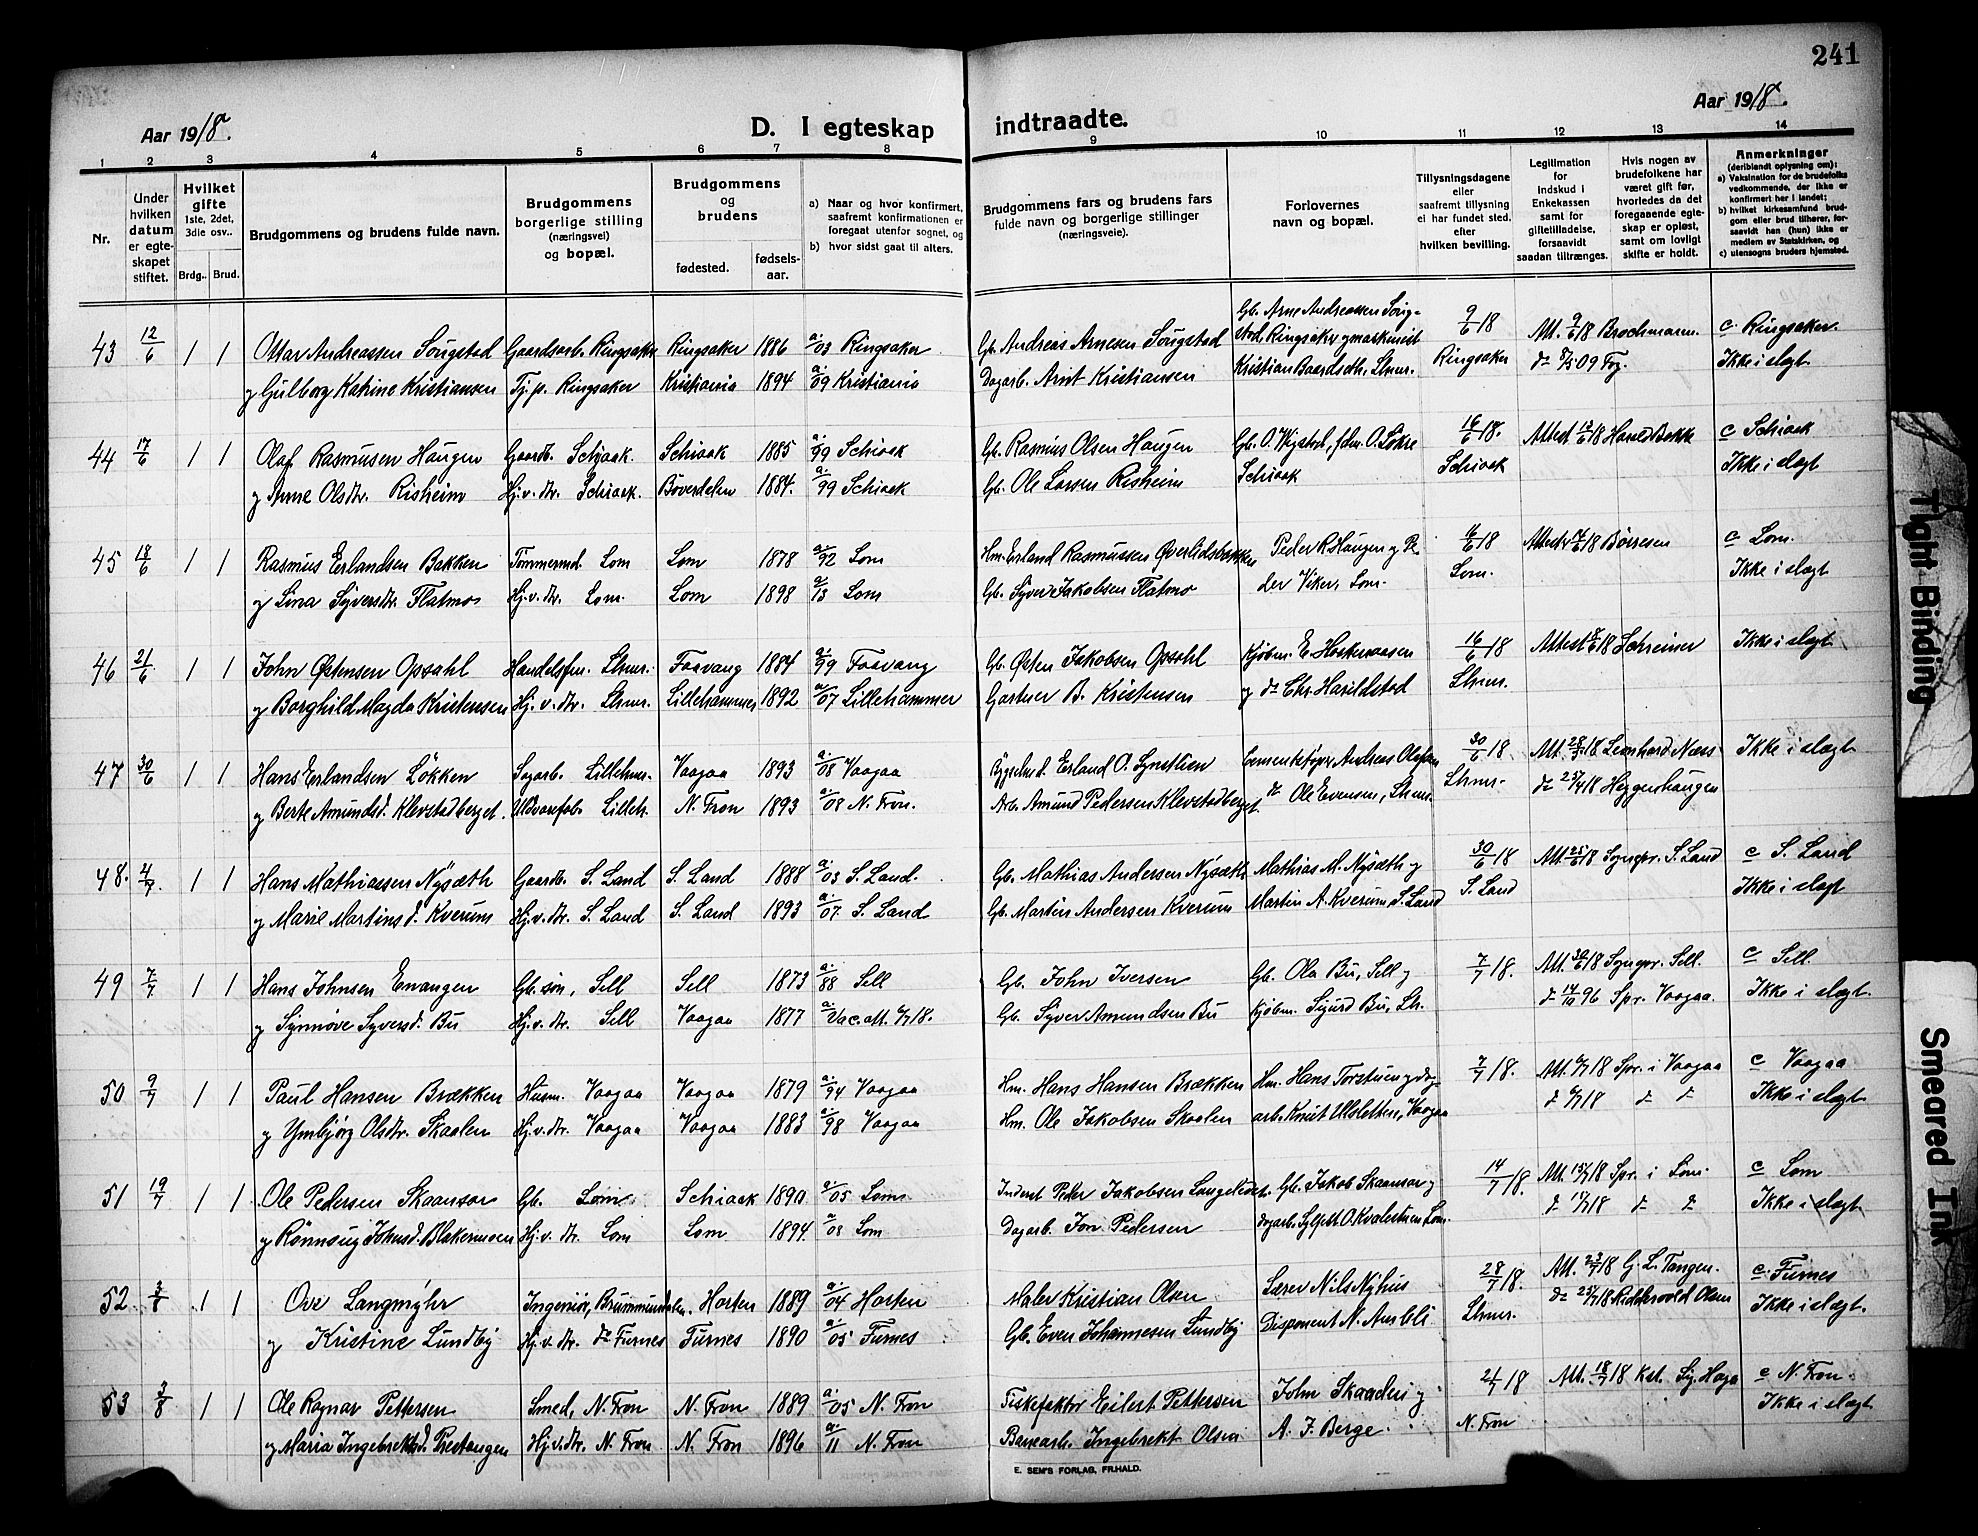 241
Aar 1918.
D. I egteskap indtraadte.
Aar 1918.
1 2 3 4 5 6 7 8 9 10 11 12 13 14
Nr.
Under hvilken datum er egteskapet stiftet.
Hvilket gifte
1ste, 2det, 3die osv..
Brdg.. Brud.
Brudgommens og brudens fulde navn.
Brudgommens borgerlige stilling (næringsvei) og bopæl.
Brudgommens og brudens
fødested. fødselsaar.
a) Naar og hvor konfirmert, saafremt konfirmationen er foregaat utenfor sognet, og
b) hvor sidst gaat til alters.
Brudgommens fars og brudens fars fulde navn og borgerlige stillinger (næringsveie).
Forlovernes navn og bopæl.
Tillysningsdagene eller saafremt tillysning ei har fundet sted, efter hvilken bevilling.
Legitimation for indskud i Enkekassen samt for giftetilladelse, forsaavidt saadan tiltrænges.
Hvis nogen av brudefolkene har været gift før, hvorledes da det foregaaende egteskap er opløst, samt om lovligt skifte er holdt.
Anmerkninger
(deriblandt oplysning om):
a) Vaksination for de brudefolks vedkommende, der ikke er konfirmert her i landet;
b) hvilket kirkesamfund brudgom eller brud tilhører, forsaavidt han (hun) ikke er medlem av Statskirken, og
c) utensogns bruders hjemsted.
43 12/6 1 1 Ottar Andreassen Sougstad Gaardsarb. Ringsaker Ringsaker 1886 a. /03 Ringsaker Gb. Andreas Arnesen Sougstad Gb. Arne Andreassen Sougstad, Ringsaker og maskinist 9/6 18 Att. 9/6 18 Brochmann. c. Ringsaker.
og Gulborg Katrine Kristiansen Tj.p. Ringsaker Kristiania 1894 a. /09 Kristiania Dagarb. Arnt Kristiansen Kristian Baardseth, Lhmr. Ringsaker Ikke i slegt
44 17/6 1 1 Olaf Rasmusen Haugen Gaardb. Schiaak. Schiaak 1885 a. /99 Schiaak Gb. Rasmus Olsen Haugen 16/6 18. c Schiaak
og Anne Olsdtr. Risheim Hj.v.dtr. Schiaak. Bøverdalen 1884. a. /99 Schiaak Gb. Ole Larsen Risheim Schiaak Schiaak Ikke i slegt
45 18/6 1 1 Rasmus Erlandsen Bakken Tømmermd. Lom Lom 1878 a. /92 Lom Hm. Erland Rasmussen Øverlidsbakken Peder R. Haugen og Pe- 16/6 18 Børresen c Lom.
og Lina Syversdtr. Flatmo Hj.v.dtr. Lom. Lom 1898 a. /13 Lom Gb. Syver Jakobsen Flatmo der Viker, Lom. Lom. Ikke i slegt
46 21/6 1 1 John Østensen Opsahl Handelsfm. Lhmr. Faavang 1884 a. /99 Faavang Gb. Østen Jakobsen Opsahl Kjøbm. 16/6 18 Schreiner Ikke i slegt
og Borghild Magda Kristensen Hj.v.dtr. Lhmr. Lillehammer 1892 a. /07 Lillehammer Gartner B. Kristensen og do Chr. Harildstad Lhmr.
47 30/6 1 1 Hans Erlandsen Løkken Sagarb. Lillehmr. Vaagaa 1893 a. /08 Vaagaa Erland O. Synstlien Cementstøper Andreas Olafsen 30/6 18 Leonhard Næss Ikke i slegt
og Berte Amundsd. Klevstadberget. Uldvarefab. Lilleh. N. Fron 1893 a. /08 N. Fron. Arb. Amund Pedersen Klevstadberget do Ole Evensen, Lhmr. Lhmr. Heggenhaugen
48. 4/7. 1 1 Hans Mathiassen Nysæth Gaardb. S. Land S. Land 1888 a. /03 S. Land. Gb. Mathias Andersen Nysæth Mathias M. Nysæth og 30/6 18 Att. 25/6 18 Sognepr. S. Land c S. Land
og Marie Martinsd. Kverum Hj.v.dtr. S. Land S. Land 1893 a. /07. S. Land Gb. Martin Andersen Kverum Martin A. Kverum S. Land S. Land Ikke i slegt
49 7/7 1 1 Hans Johnsen Envangen Gb. søn, Sell Sell 1873 a. /88 Sell Gb. John Iversen Gb. Ola Bu, Sell og 7/7 18. Att. 30/6 18 Sognepr. Sell. c Sell.
og Synnøve Syversd. Bu Hj.v.dtr. Sell Vaagaa 1877 a. Vac. att. 6/7 18. Gb. Syver Amundsen Bu Kjøbm. Sigurd Bu, Lh. Spr. Vaagaa. Ikke i slegt.
50 9/7 1 1 Paul Hansen Brækken Husm. Vaagaa Vaagaa 1879 a. /94 Vaagaa Hm. Hans Hansen Brækken Hm. Hans Torstuen og dag- 7/7 18. Att. 6/7 18 Spr. i Vaagaa c Vaagaa
og Ymbjørg Olsdtr. Skaalen Hj.v.dtr. Vaagaa Vaagaa 1883 a. /98 Vaagaa Hm. Ole Jakobsen Skaalen arb. Knut Ulsletten, Vaagaa Ikke i slegt.
51 19/7 1 1 Ole Pedersen Skaansar Gb. Lom Schiaak 1890 a. /05 Lom Inderst Peder Jakobsen Gb. Jakob Skaansar og 14/7 18. Spr. i Lom. c Lom
og Rønnaug Johnsd. Blakermoen Hj.v.dtr. Lom Lom 1894 a. /08 Lom Dagarb. Jon Pedersen Ikke i slegt
52. 3/8 1 1 Ove Langmyhr Ingeniør, Brummundalen. Horten 1889 a. /04 Horten Maler Kristian Olsen Lærer Nils Nyhus 28/7 18. Att. 23/7 18 G. L. Tangen. c. Furnes
og Kristine Lundby Hj.v.dtr. do Furnes Furnes 1890 a. /05 Furnes Gb. Even Johannesen Lundby Disponent N. Aurbli Lhmr. do 23/7 18 Riddervold Olsen Ikke i slegt.
53 3/8 1 1 Ole Ragnar Pettersen Smed, N. Fron N. Fron 1889 a. /05 N. Fron Fiskefaktor Eilert Pettersen John Skaadlei og 21/7 18 Att. 18/7 18 c N. Fron.
og Maria Ingebrektsd. Prestangen Hj.v.dtr. N. Fron N. Fron 1896 a. /11 N. Fron Banearb. Ingebrekt Olsen A. J. Berge. N. Fron Ikke i slegt.
E. SEM'S FORLAG, FR.HALD.
Tight Binding
Smeared Ink